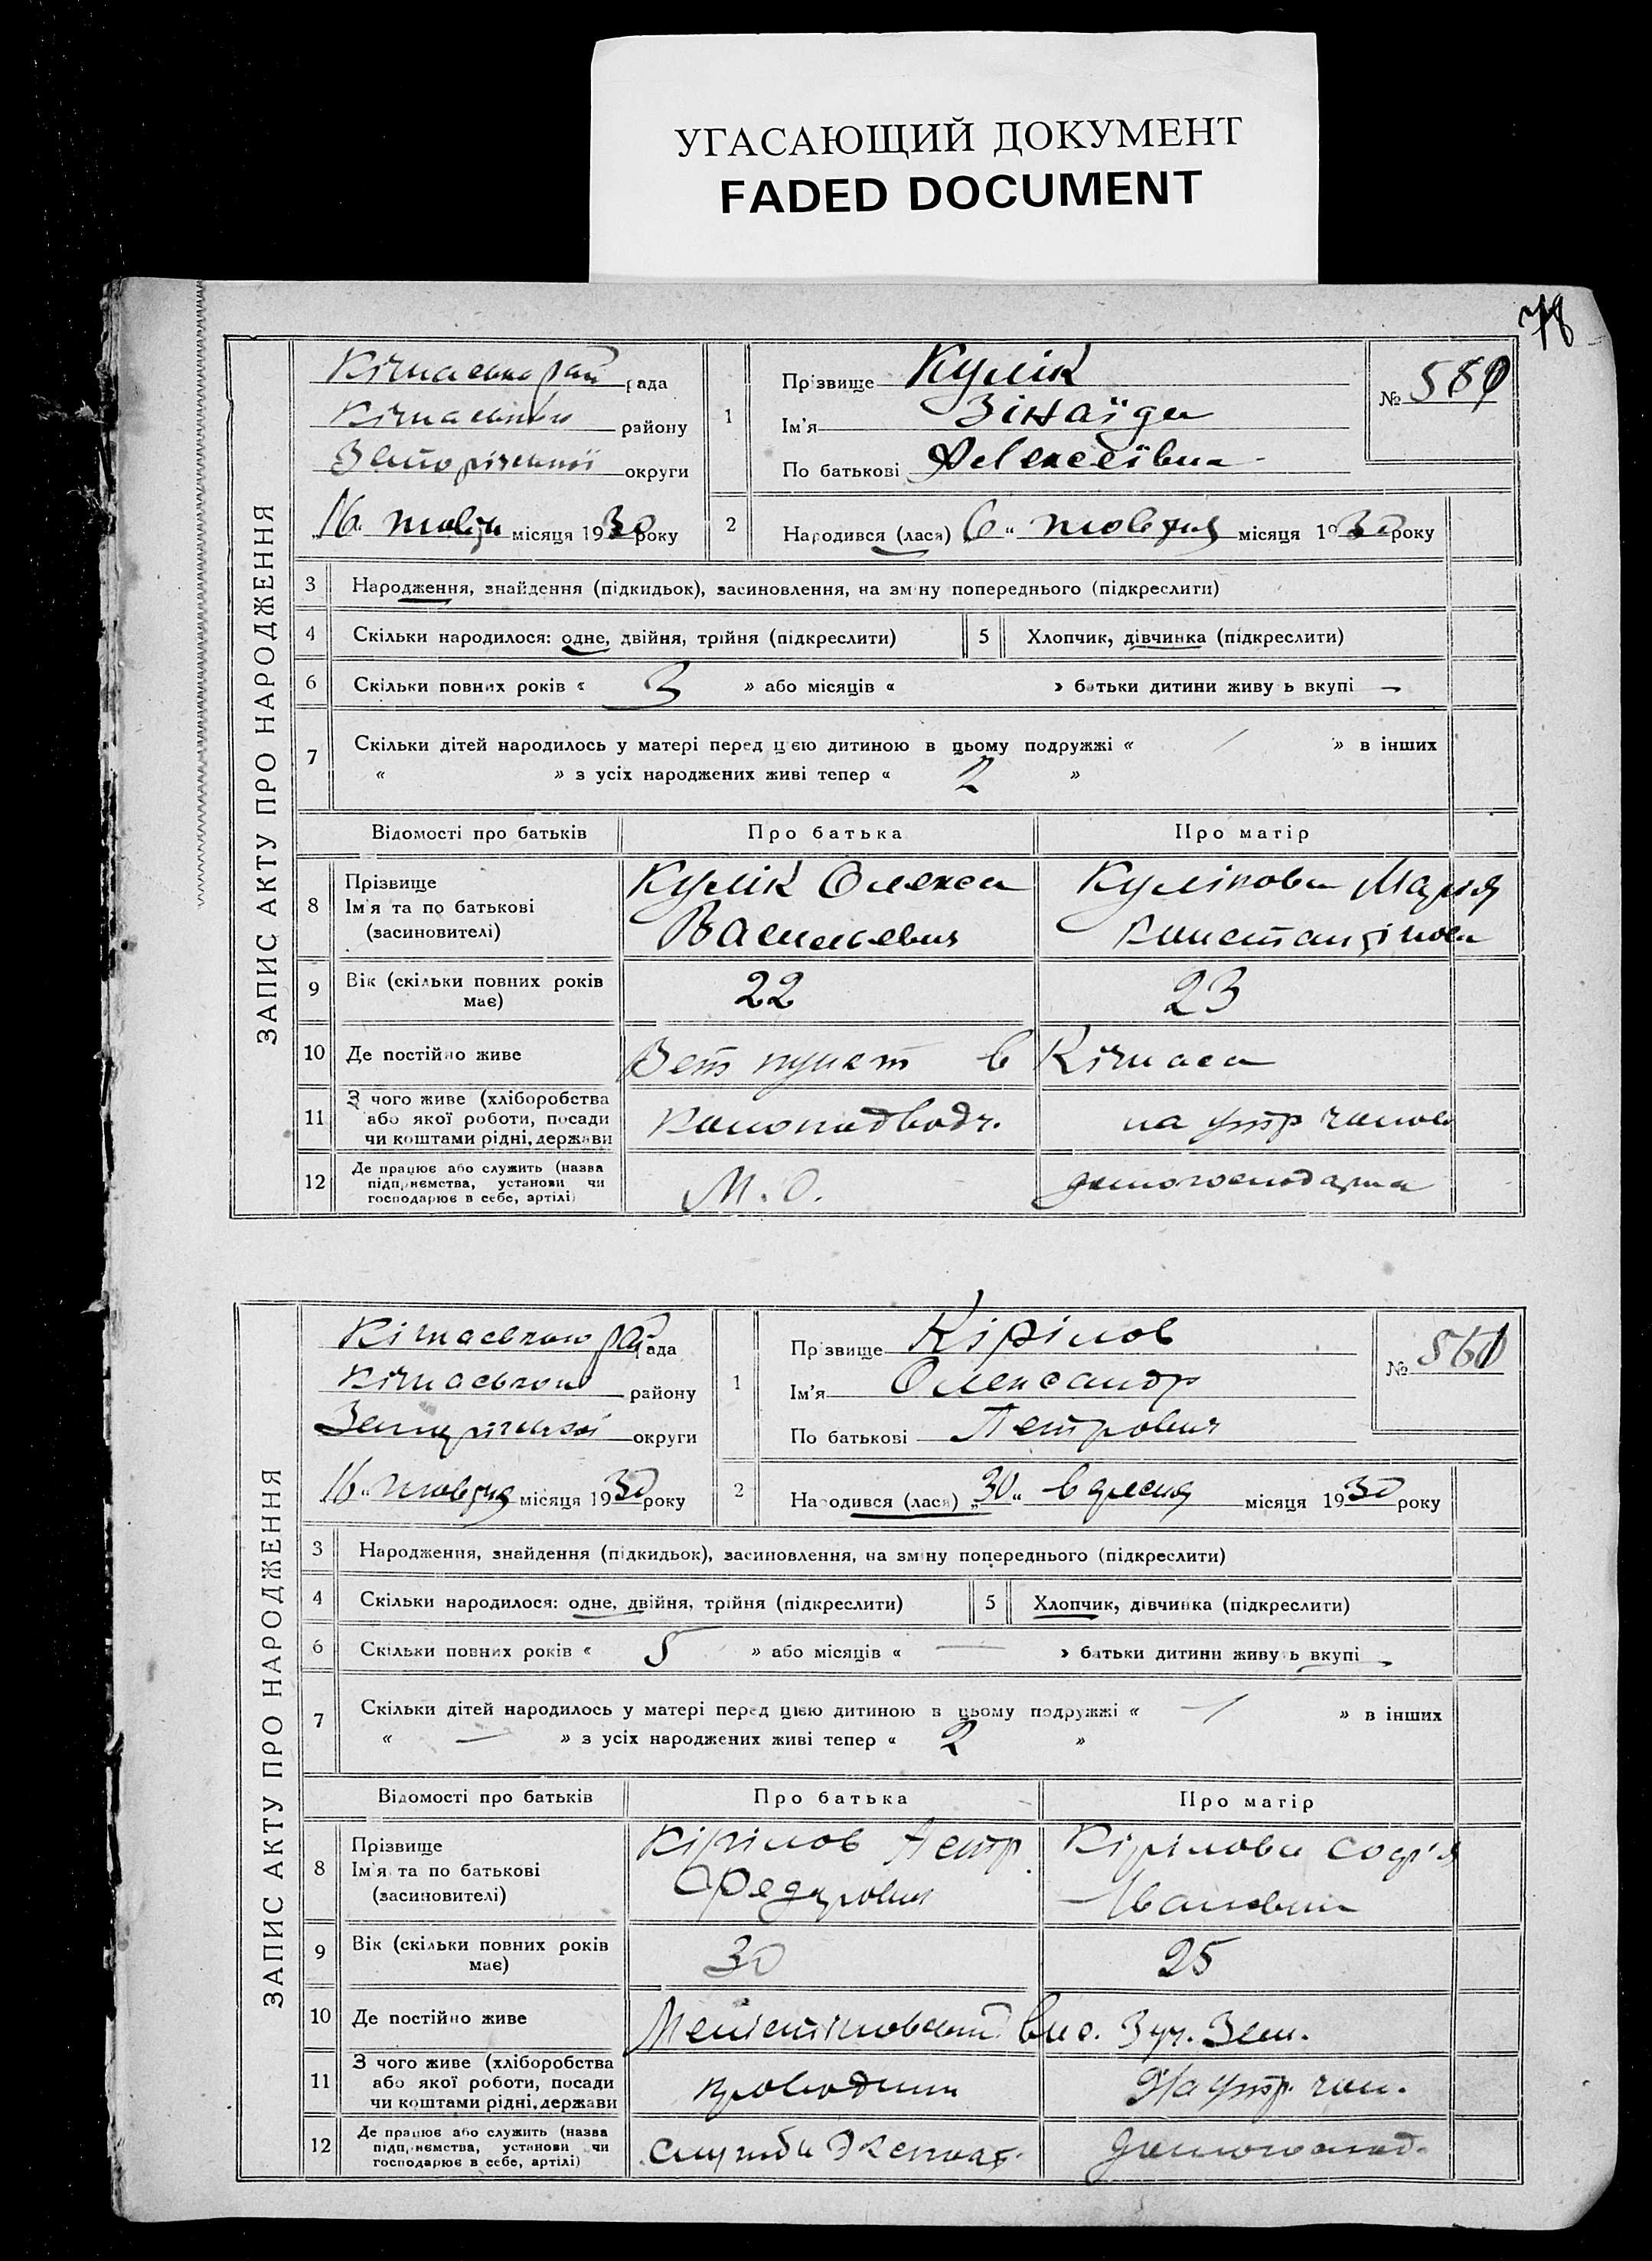 УГАСАЮЩИЙ ДОКУМЕНТ
FADED DOCUMENT
78
ЗАПИС АКТУ ПРО НАРОДЖЕННЯ
рада
району
округи
16 місяця 1930 року
1
Прізвище Кулік
Ім'я Зінаїда
По батькові Алексеївна
№
2 Народився (лася) „6“ жовтня місяця 1930 року
3 Народження, знайдення (підкидьок), засиновлення, на зміну попереднього (підкреслити)
4 Скільки народилося: одне, двійня, трійня (підкреслити)
5 Хлопчик, дівчинка (підкреслити)
6 Скільки повних років « 3 » або місяців « » батьки дитини живуть вкупі —
7 Скільки дітей народилось у матері перед цією дитиною в цьому подружжі « / » в інших
« » з усіх народжених живі тепер « 2 »
Відомості про батьків Про батька Про матір
8 Прізвище
Ім'я та по батькові
(засиновителі)
Кулік Олекса
Васильевич
Кулікова Марія
Константінов
9 Вік (скільки повних років
має)
22 23
10 Де постійно живе Вет пункт в Кічкаса
11 З чого живе (хліборобства
або якої роботи, посади
чи коштами рідні, держави
на утр чолов
12 Де працює або служить (назва
підприємства, установи чи
господарює в себе, артілі)
М. О. домогосподарка
ЗАПИС АКТУ ПРО НАРОДЖЕННЯ
рада
району
округи
16 “ жовтня місяця 1930 року
1
Прізвище Кірілов
Ім'я Олександр
По батькові Петрович
№
2 Народився (лася) „30“ вересня місяця 1930 року
3 Народження, знайдення (підкидьок), засиновлення, на зміну попереднього (підкреслити)
4 Скільки народилося: одне, двійня, трійня (підкреслити)
5 Хлопчик, дівчинка (підкреслити)
6 Скільки повних років « 5 » або місяців « — » батьки дитини живуть вкупі —
7 Скільки дітей народилось у матері перед цією дитиною в цьому подружжі « 1 » в інших
« — » з усіх народжених живі тепер « 2 »
Відомості про батьків Про батька Про матір
8 Прізвище
Ім'я та по батькові
(засиновителі)
Кірілов Петр
Федорович
Кірілова Соф'я
Івановна
9 Вік (скільки повних років
має)
30 25
10 Де постійно живе
11 З чого живе (хліборобства
або якої роботи, посади
чи коштами рідні, держави
На утр. чол.
12 Де працює або служить (назва
підприємства, установи чи
господарює в себе, артілі)
служба Эксплоат. домогоспод.